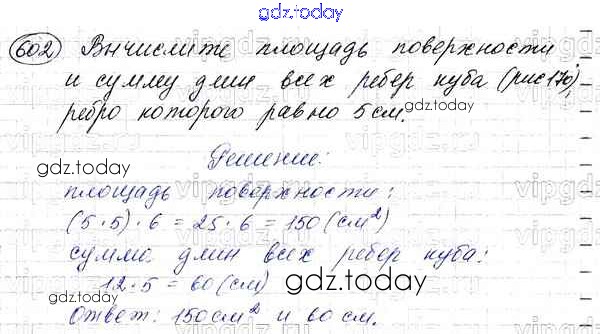 gdz.today
602 Вычислите площадь поверхности
и сумму длин всех ребер куба (рис 170),
ребро которого равно 5 см.
gdz.today
gdz.today
Решение:
gdz.today
площадь поверхности:
(5·5)·6 = 25·6 = 150 (см²)
сумма длин всех ребер куба:
12·5 = 60 (см)
gdz.today
Ответ: 150 см² и 60 см.
gdz.today